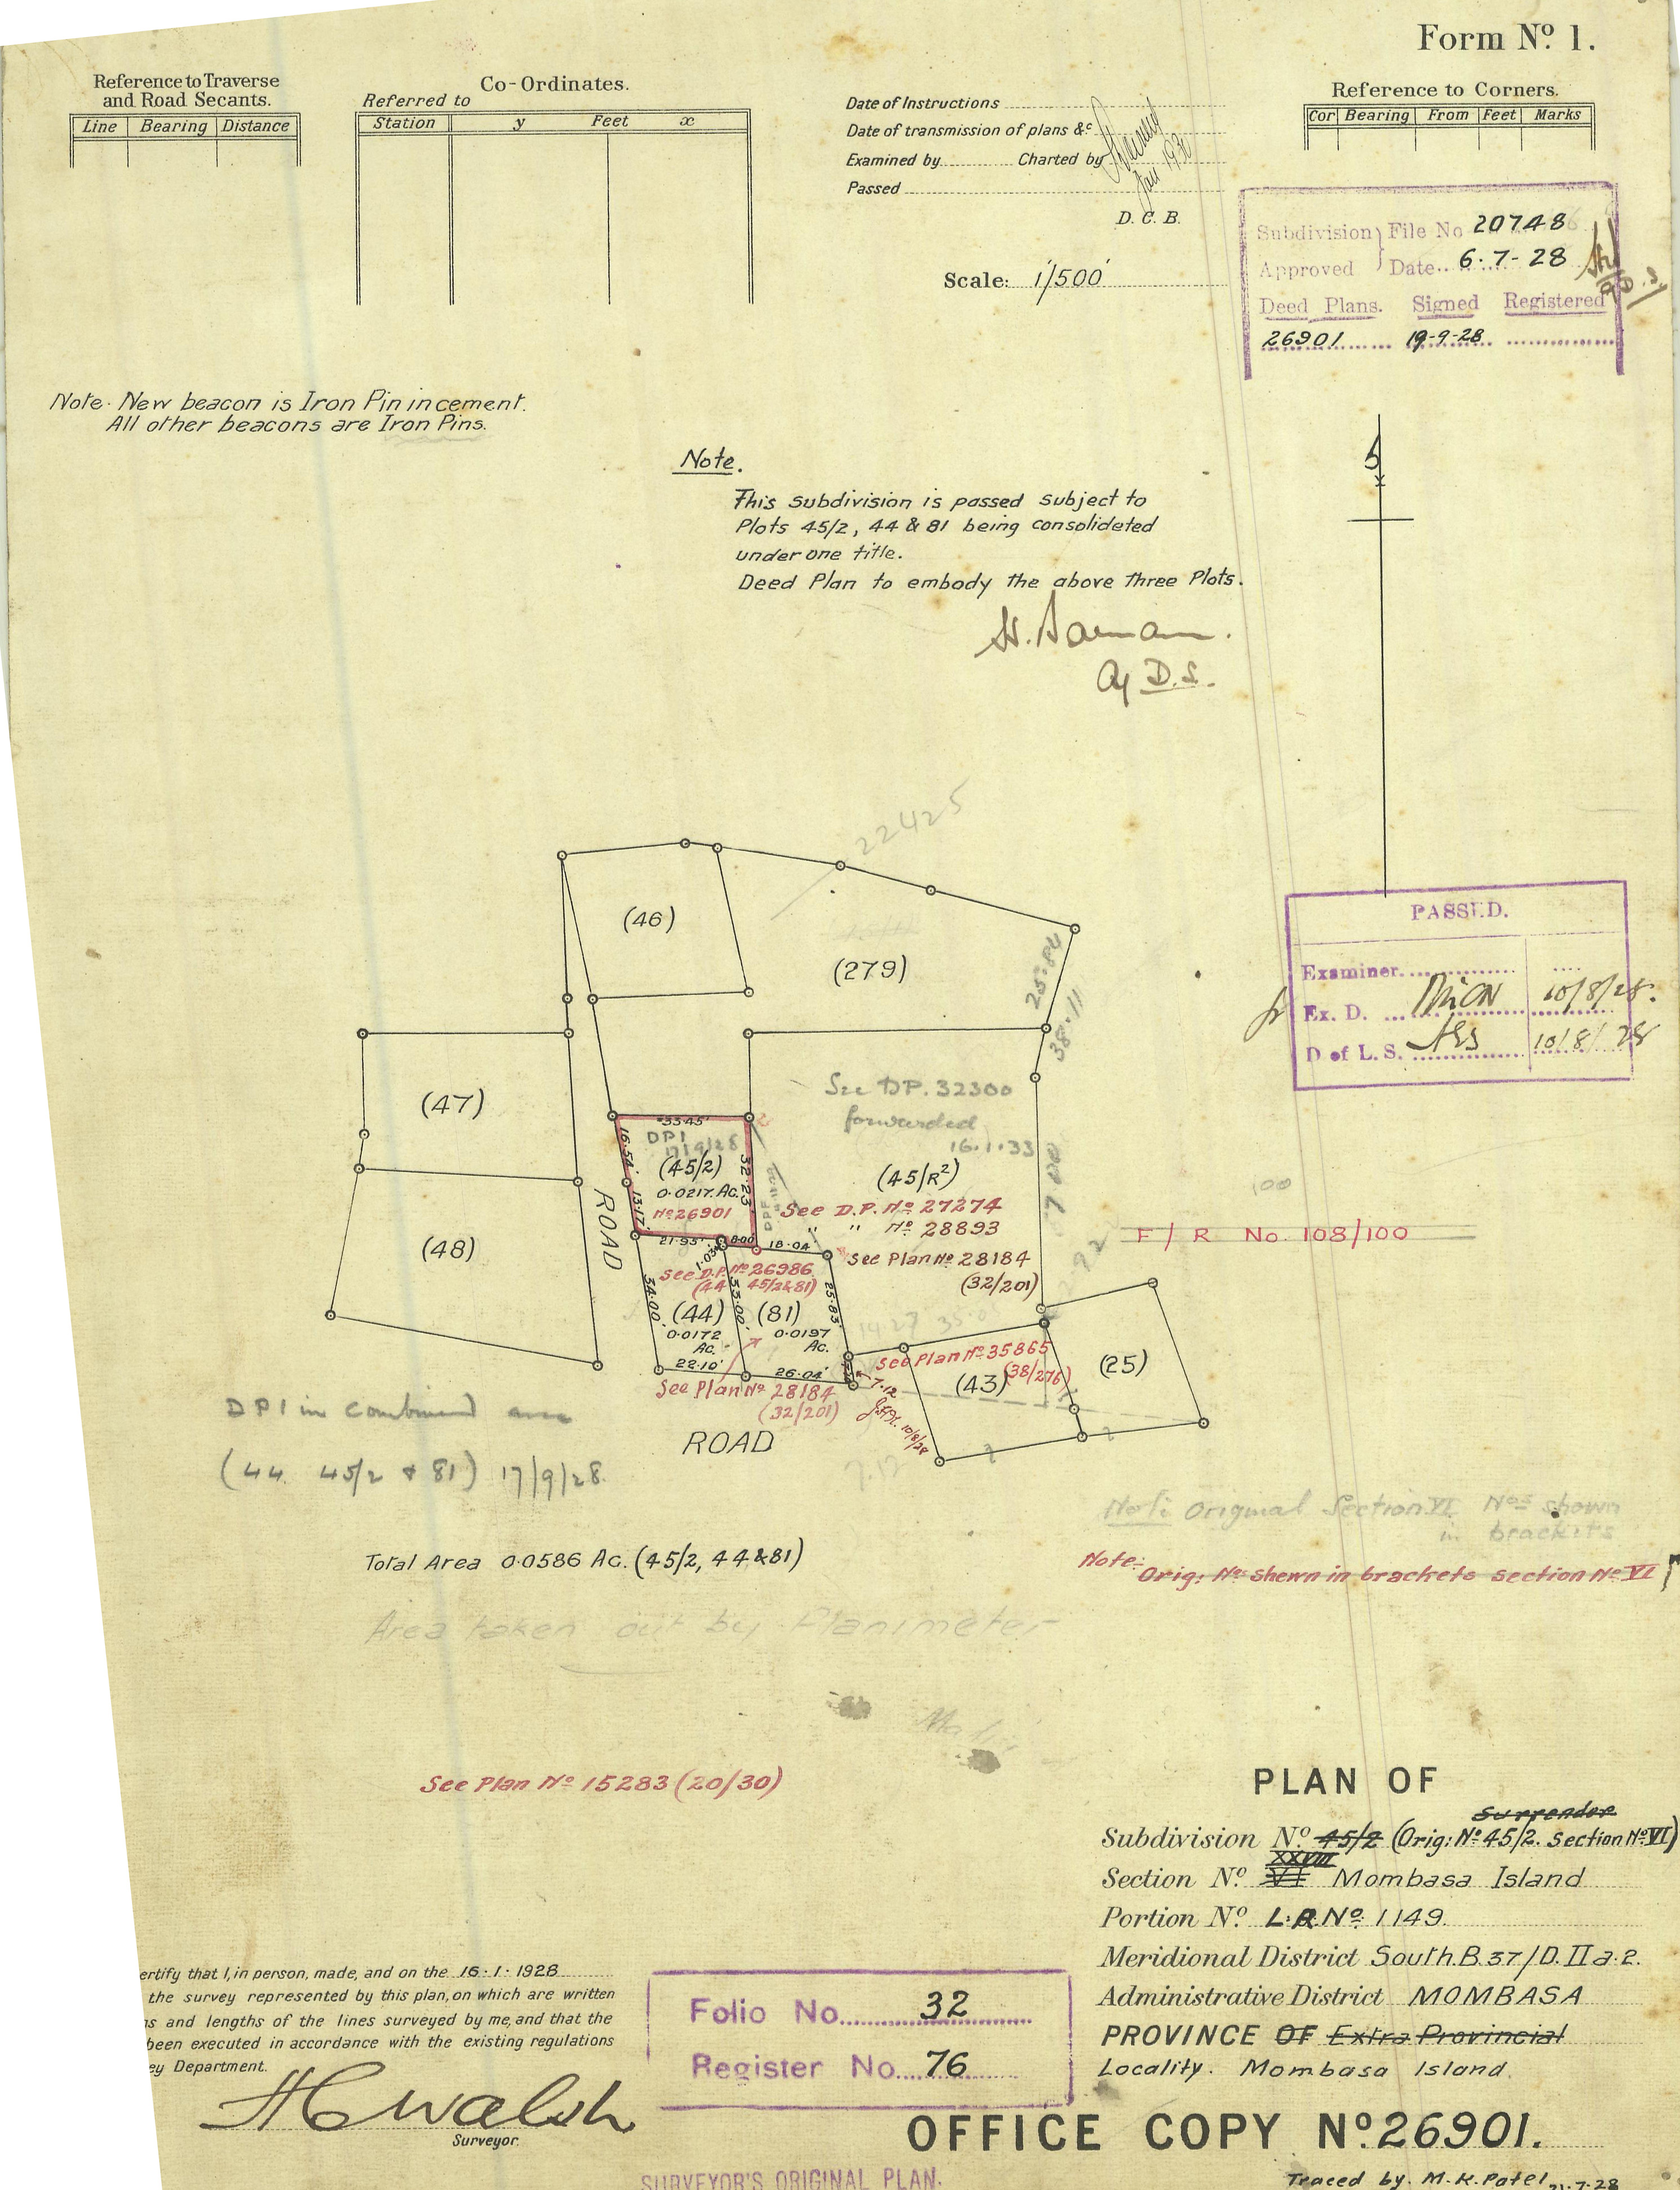 Form Nº 1.
Reference to Traverse
and Road Secants.
Line Bearing Distance
Co-Ordinates.
Referred to
Station y Feet x
Date of Instructions
Date of transmission of plans &c
Examined by Charted by
Jan 1930
Passed
D. C. B.
Scale: 1"/500'
Reference to Corners.
Cor Bearing From Feet Marks
Subdivision File No 20748
Approved Date 6.7-28
Deed Plans. Signed Registered
26901 19-9-28
Note. New beacon is Iron Pin in cement.
All other beacons are Iron Pins.
Note.
This subdivision is passed subject to
Plots 45/2, 44 & 81 being consolidated
under one title.
Deed Plan to embody the above three Plots.
Ag D.S.
22425
(46)
(279)
25.84
38.11
PASSED.
Examiner
Ex. D. 10/8/28.
D of L. S. 10/8/28
(47)
(48)
ROAD
See DP. 32300
forwarded
16.1.33
33.45'
DP1
17/9/28
(45/2)
0.0217 Ac.
Nº 26901
16.54
13.17
32.23
(45/R²)
See D.P. Nº 27274
" " Nº 28893
See Plan Nº 28184
(32/201)
F/R No. 108/100
100
21.95' 8.00 18.04'
1.03
See D.P. Nº 26986
(44 45/2 & 81)
34.00
33.00
25.83
(44)
0.0172
Ac.
(81)
0.0197
Ac.
22.10'
26.04'
7.12
See Plan Nº 28184
(32/201)
See Plan Nº 35865
(38/276)
(43)
(25)
10/8/28
7.12
ROAD
DP1 in combined area
(44 45/2 & 81) 17/9/28.
Total Area 0.0586 Ac. (45/2, 44 & 81)
Area taken out by Planimeter
Note Original Section VI Nos shown
in brackets
Note:- Orig: Nos shewn in brackets section No VI
See Plan Nº 15283 (20/30)
PLAN OF
Surrender
Subdivision Nº 45/2 (Orig: Nº 45/2. Section Nº VI)
XXVIII
Section Nº VI Mombasa Island
Portion Nº L.R. Nº 1149.
Meridional District South.B.37/D.II a.2.
Administrative District MOMBASA
PROVINCE OF Extra Provincial
Locality. Mombasa Island.
ertify that I, in person, made, and on the 16.1.1928
the survey represented by this plan, on which are written
s and lengths of the lines surveyed by me, and that the
been executed in accordance with the existing regulations
ey Department.
HC Walsh
Surveyor.
Folio No. 32
Register No. 76
OFFICE COPY Nº 26901.
SURVEYOR'S ORIGINAL PLAN.
Traced by. M.K. Patel 21.7.28